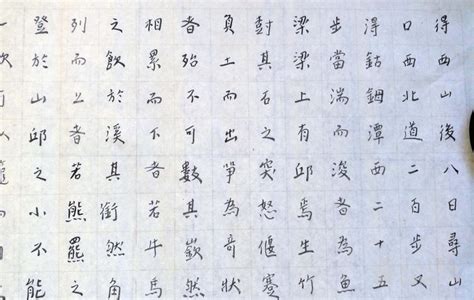 得西山後八日尋山
口西北道二百步又
淂鈷鉧潭西二十五
步當湍而浚者為魚
梁梁上有邱焉生竹
尌其石之突怒偃蹇
負土而出爭為奇狀
者殆不可數其嶔然
相累而下者若牛馬
之飲於溪其衝然角
列而上者若熊羆之
登於山邱之小不能